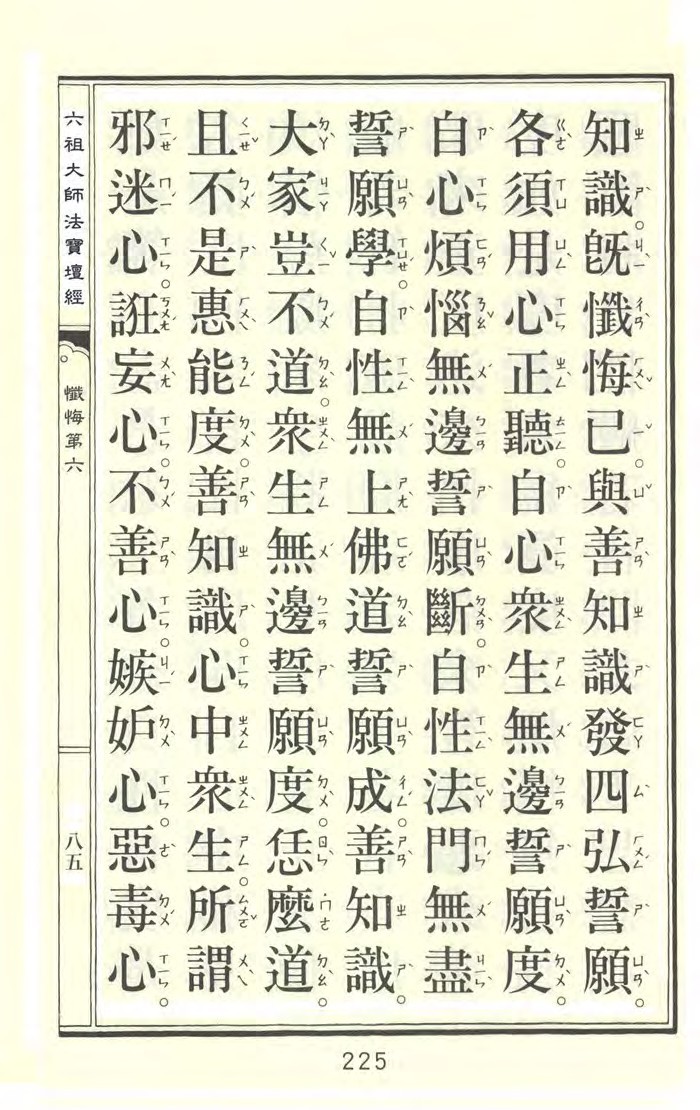 知識。既懺悔已。與善知識發四弘誓願。
各須用心正聽。自心衆生無邊誓願度。
自心煩惱無邊誓願斷。自性法門無盡
誓願學。自性無上佛道誓願成。善知識。
大家豈不道。衆生無邊誓願度。恁麼道。
且不是惠能度。善知識。心中衆生。所謂
邪迷心。誑妄心。不善心。嫉妒心。惡毒心。
六祖大師法寶壇經
懺悔第六
八五
225